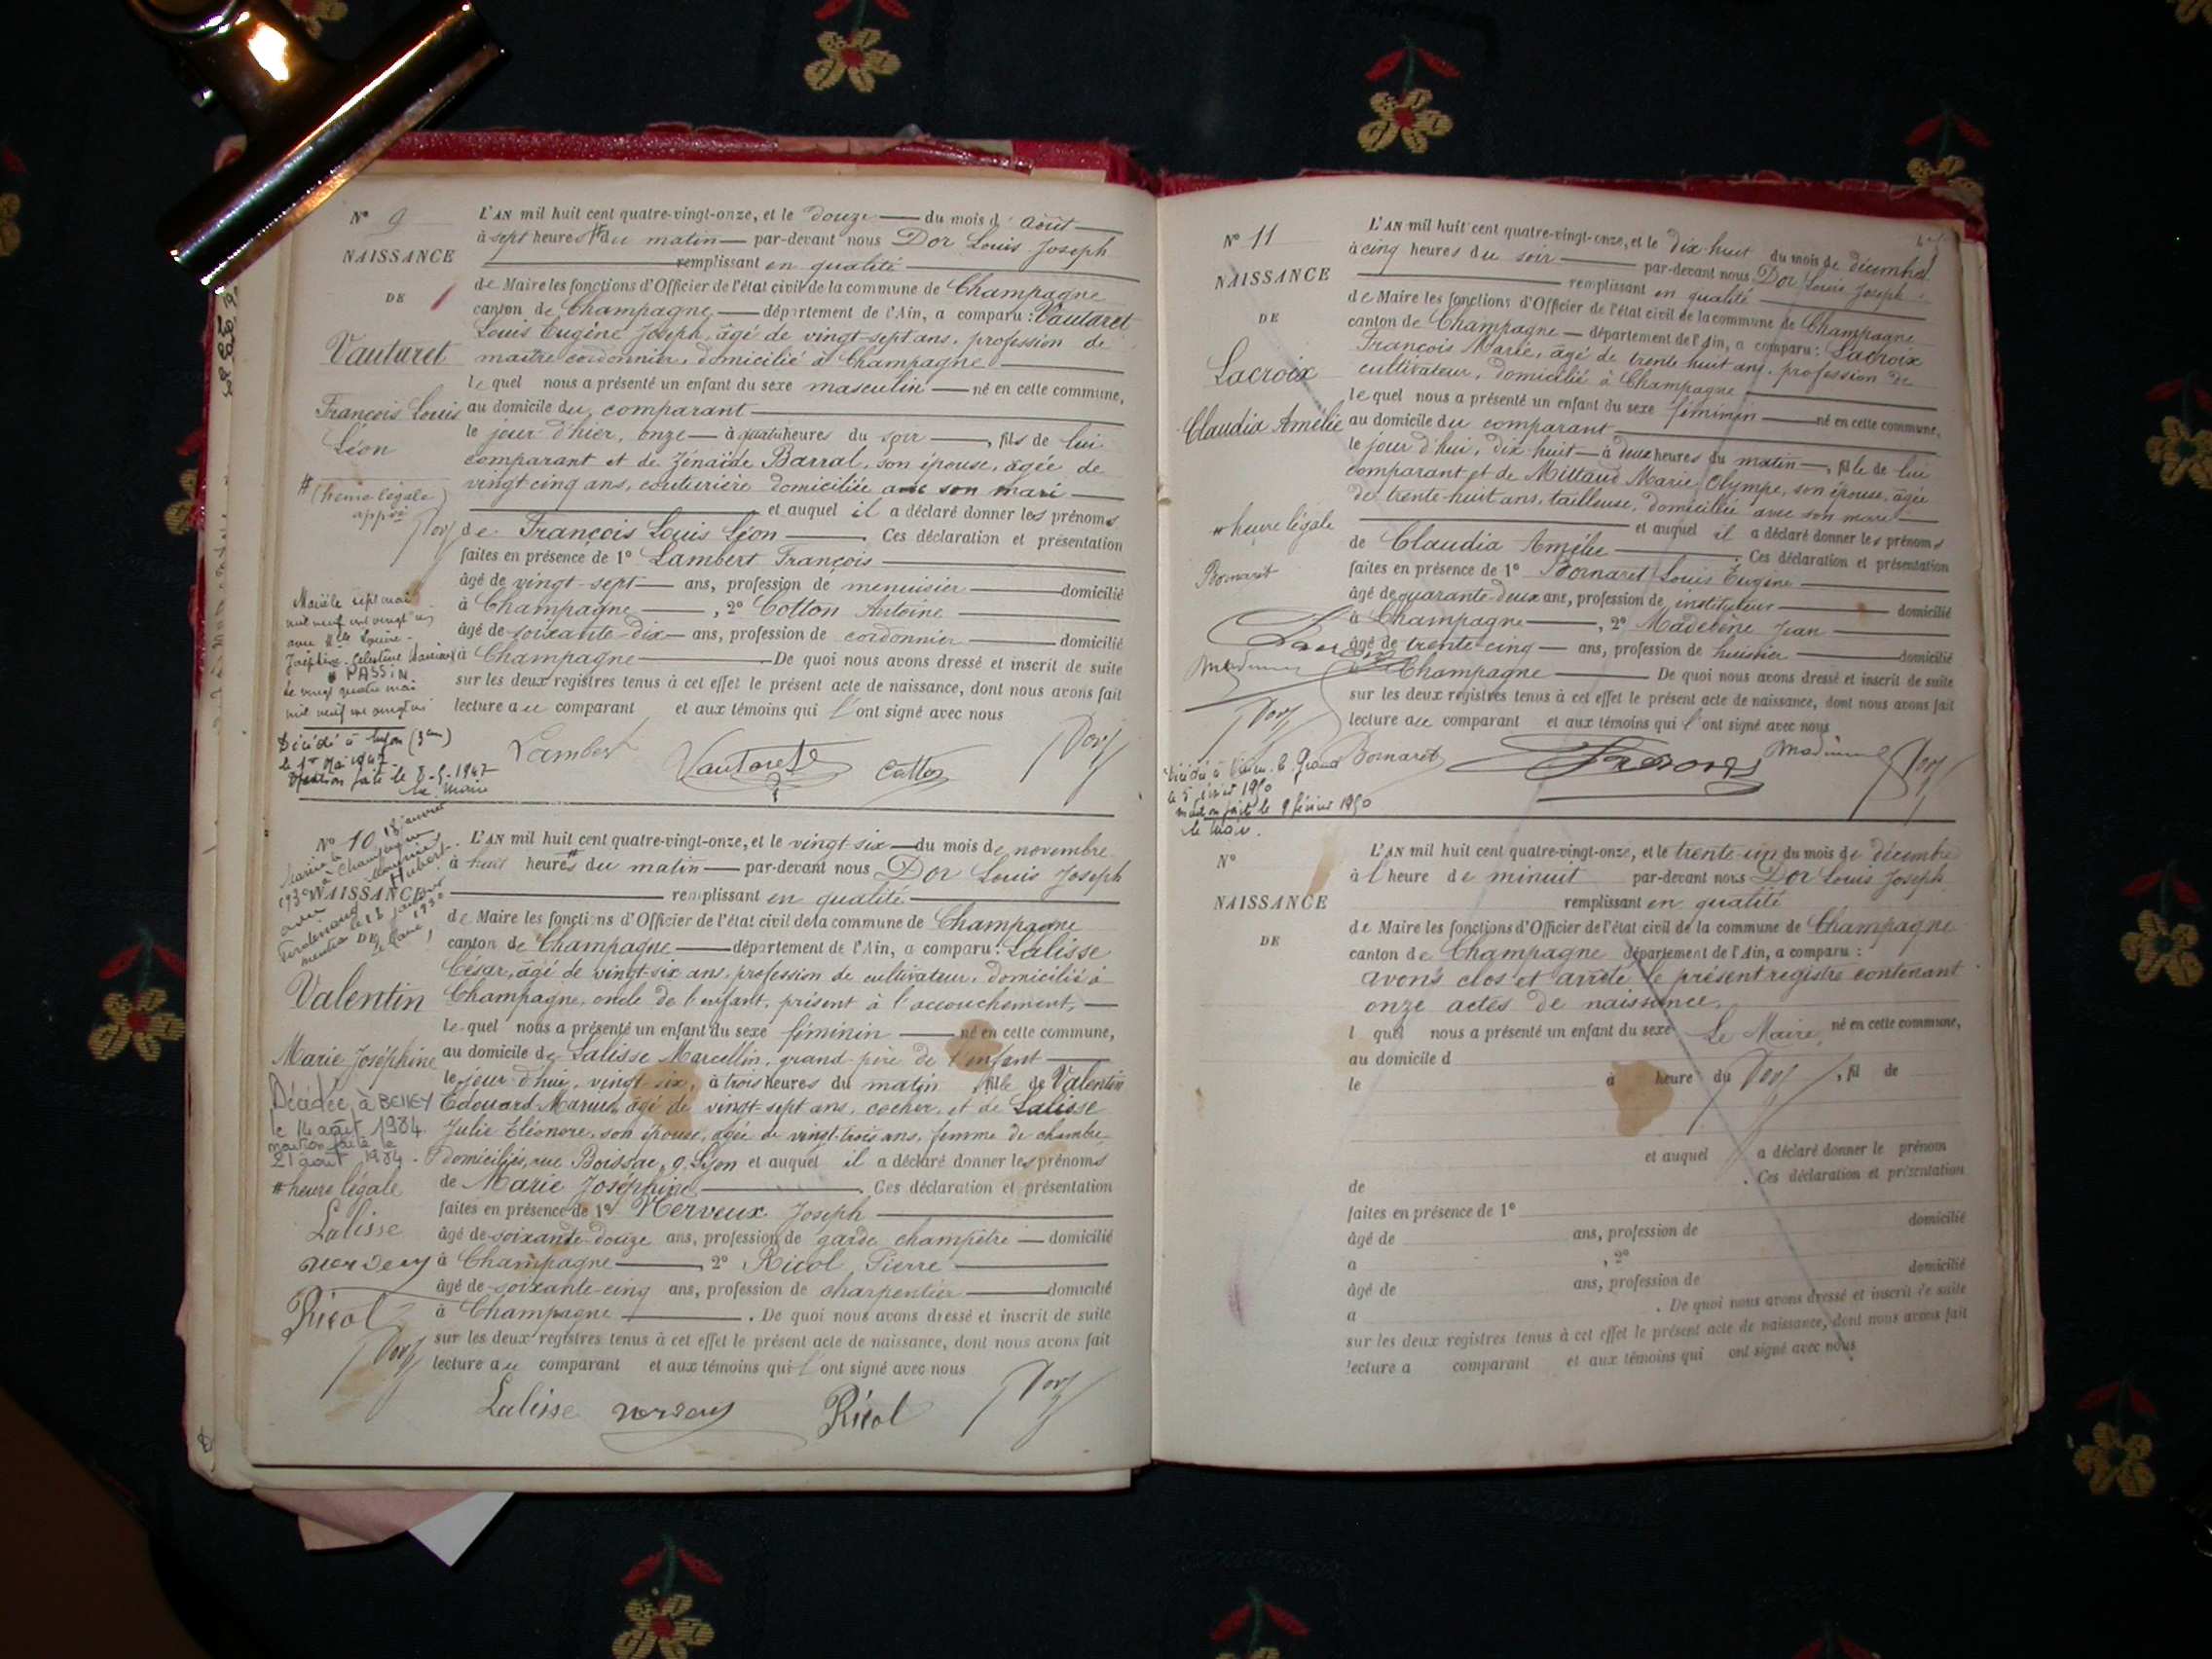 N° 9
NAISSANCE
DE
Vautaret
François Louis
Léon
# (heure légale)
appvé
Dor
Marié le sept mai
mil neuf cent vingt
avec Mlle Louise
Joséphine Célestine
PASSIN
Le vingt quatre mai
mil neuf cent vingt
Décédé à Lyon (3em)
le 1er Mai 1947
Mention faite le 8-5-1947
Le Maire
L'AN mil huit cent quatre-vingt-onze, et le douze du mois d'août
à sept heures # du matin par-devant nous Dor Louis Joseph
remplissant en qualité
de Maire les fonctions d'Officier de l'état civil de la commune de Champagne
canton de Champagne département de l'Ain, a comparu : Vautaret
Louis Eugène Joseph, âgé de vingt-sept ans, profession de
maître cordonnier, domicilié à Champagne
lequel nous a présenté un enfant du sexe masculin né en cette commune,
au domicile du comparant
le jour d'hier, onze à quatre heures du soir, fils de lui
comparant et de Zénaïde Barral, son épouse, âgée de
vingt cinq ans, couturière domiciliée avec son mari
et auquel il a déclaré donner les prénoms
de François Louis Léon . Ces déclaration et présentation
faites en présence de 1° Lambert François
âgé de vingt-sept ans, profession de menuisier domicilié
à Champagne , 2° Cotton Antoine
âgé de soixante-dix ans, profession de cordonnier domicilié
à Champagne De quoi nous avons dressé et inscrit de suite
sur les deux registres tenus à cet effet le présent acte de naissance, dont nous avons fait
lecture au comparant et aux témoins qui l'ont signé avec nous
Lambert Vautaret Cotton Dor
N° 10
NAISSANCE
DE
Marié à Champagne
18 janvier
1930
avec Maurice
Ferdinand Hubert
mention le 18 janvier
1930
Le Maire
Valentin
Marie Joséphine
Décédée à BELLEY
le 14 août 1984.
mention faite le
21 août 1984.
# heure légale
Lalisse
Ricol
Dor
L'AN mil huit cent quatre-vingt-onze, et le vingt-six du mois de novembre
à huit heures # du matin par-devant nous Dor Louis Joseph
remplissant en qualité
de Maire les fonctions d'Officier de l'état civil de la commune de Champagne
canton de Champagne département de l'Ain, a comparu : Lalisse
César, âgé de vingt-six ans, profession de cultivateur, domicilié à
Champagne, oncle de l'enfant, présent à l'accouchement,
lequel nous a présenté un enfant du sexe féminin né en cette commune,
au domicile de Lalisse Marcellin, grand-père de l'enfant
le jour d'hui, vingt-six, à trois heures du matin, fille de Valentin
Edouard Marius, âgé de vingt-sept ans, cocher, et de Lalisse
Julie Eléonore, son épouse, âgée de vingt-trois ans, femme de chambre
domiciliés, rue Boissac, 9, Lyon et auquel il a déclaré donner les prénoms
de Marie Joséphine . Ces déclaration et présentation
faites en présence de 1° Nerveux Joseph
âgé de soixante-douze ans, profession de garde champêtre domicilié
à Champagne , 2° Ricol Pierre
âgé de soixante-cinq ans, profession de charpentier domicilié
à Champagne . De quoi nous avons dressé et inscrit de suite
sur les deux registres tenus à cet effet le présent acte de naissance, dont nous avons fait
lecture au comparant et aux témoins qui l'ont signé avec nous
Lalisse Ricol Dor
N° 11
NAISSANCE
DE
Lacroix
Claudia Amélie
# heure légale
Bornaret
Dor
le 5 février 1950
mention faite le 9 février 1950
Le Maire
L'AN mil huit cent quatre-vingt-onze, et le dix-huit du mois de décembre
à cinq heures du soir par-devant nous Dor Louis Joseph
remplissant en qualité
de Maire les fonctions d'Officier de l'état civil de la commune de Champagne
canton de Champagne département de l'Ain, a comparu : Lacroix
François Marie, âgé de trente huit ans, profession de
cultivateur, domicilié à Champagne
lequel nous a présenté un enfant du sexe féminin né en cette commune,
au domicile du comparant
le jour d'hui, dix-huit à deux heures du matin, fille de lui
comparant et de Mittaud Marie Olympe, son épouse, âgée
de trente-huit ans, tailleuse, domiciliée avec son mari
et auquel il a déclaré donner les prénoms
de Claudia Amélie . Ces déclaration et présentation
faites en présence de 1° Bornaret Louis Eugène
âgé de quarante-deux ans, profession de instituteur domicilié
à Champagne , 2° Madelène Jean
âgé de trente-cinq ans, profession de huissier domicilié
à Champagne De quoi nous avons dressé et inscrit de suite
sur les deux registres tenus à cet effet le présent acte de naissance, dont nous avons fait
lecture au comparant et aux témoins qui l'ont signé avec nous
Bornaret Lacroix Dor
N°
NAISSANCE
DE
L'AN mil huit cent quatre-vingt-onze, et le trente-un du mois de décembre
à l'heure de minuit par-devant nous Dor Louis Joseph
remplissant en qualité
de Maire les fonctions d'Officier de l'état civil de la commune de Champagne
canton de Champagne département de l'Ain, a comparu :
avons clos et arrêté le présent registre contenant
onze actes de naissance.
l quel nous a présenté un enfant du sexe Le Maire, né en cette commune,
au domicile d
le à heure du Dor , fil de
et auquel a déclaré donner le prénom
de . Ces déclaration et présentation
faites en présence de 1°
âgé de ans, profession de domicilié
a , 2°
âgé de ans, profession de domicilié
a . De quoi nous avons dressé et inscrit de suite
sur les deux registres tenus à cet effet le présent acte de naissance, dont nous avons fait
lecture a comparant et aux témoins qui ont signé avec nous